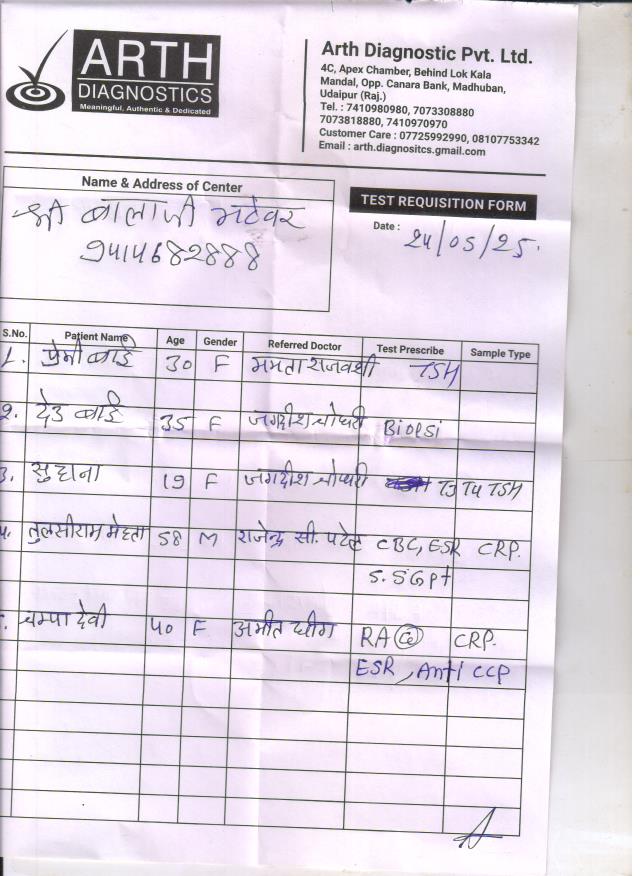 ARTH
DIAGNOSTICS
Meaningful, Authentic & Dedicated
Arth Diagnostic Pvt. Ltd.
4C, Apex Chamber, Behind Lok Kala
Mandal, Opp. Canara Bank, Madhuban,
Udaipur (Raj.)
Tel. : 7410980980, 7073308880
7073818880, 7410970970
Customer Care : 07725992990, 08107753342
Email : arth.diagnositcs.gmail.com
Name & Address of Center
श्री बालाजी भटेवर
9414682888
TEST REQUISITION FORM
Date : 24/05/25.
S.No. Patient Name Age Gender Referred Doctor Test Prescribe Sample Type
1. प्रेमी बाई 30 F ममता राजवंशी TSH
2. देउ बाई 35 F जगदीश चौधरी Biopsi
3. सुहाना 19 F जगदीश चौधरी T3 T4 TSH
4. तुलसीराम मेहता 58 M राजेन्द्र सी. पटेल CBC, ESR CRP.
S. SGPT
चम्पा देवी 40 F अमीत धींग RA CRP.
ESR, Anti CCP